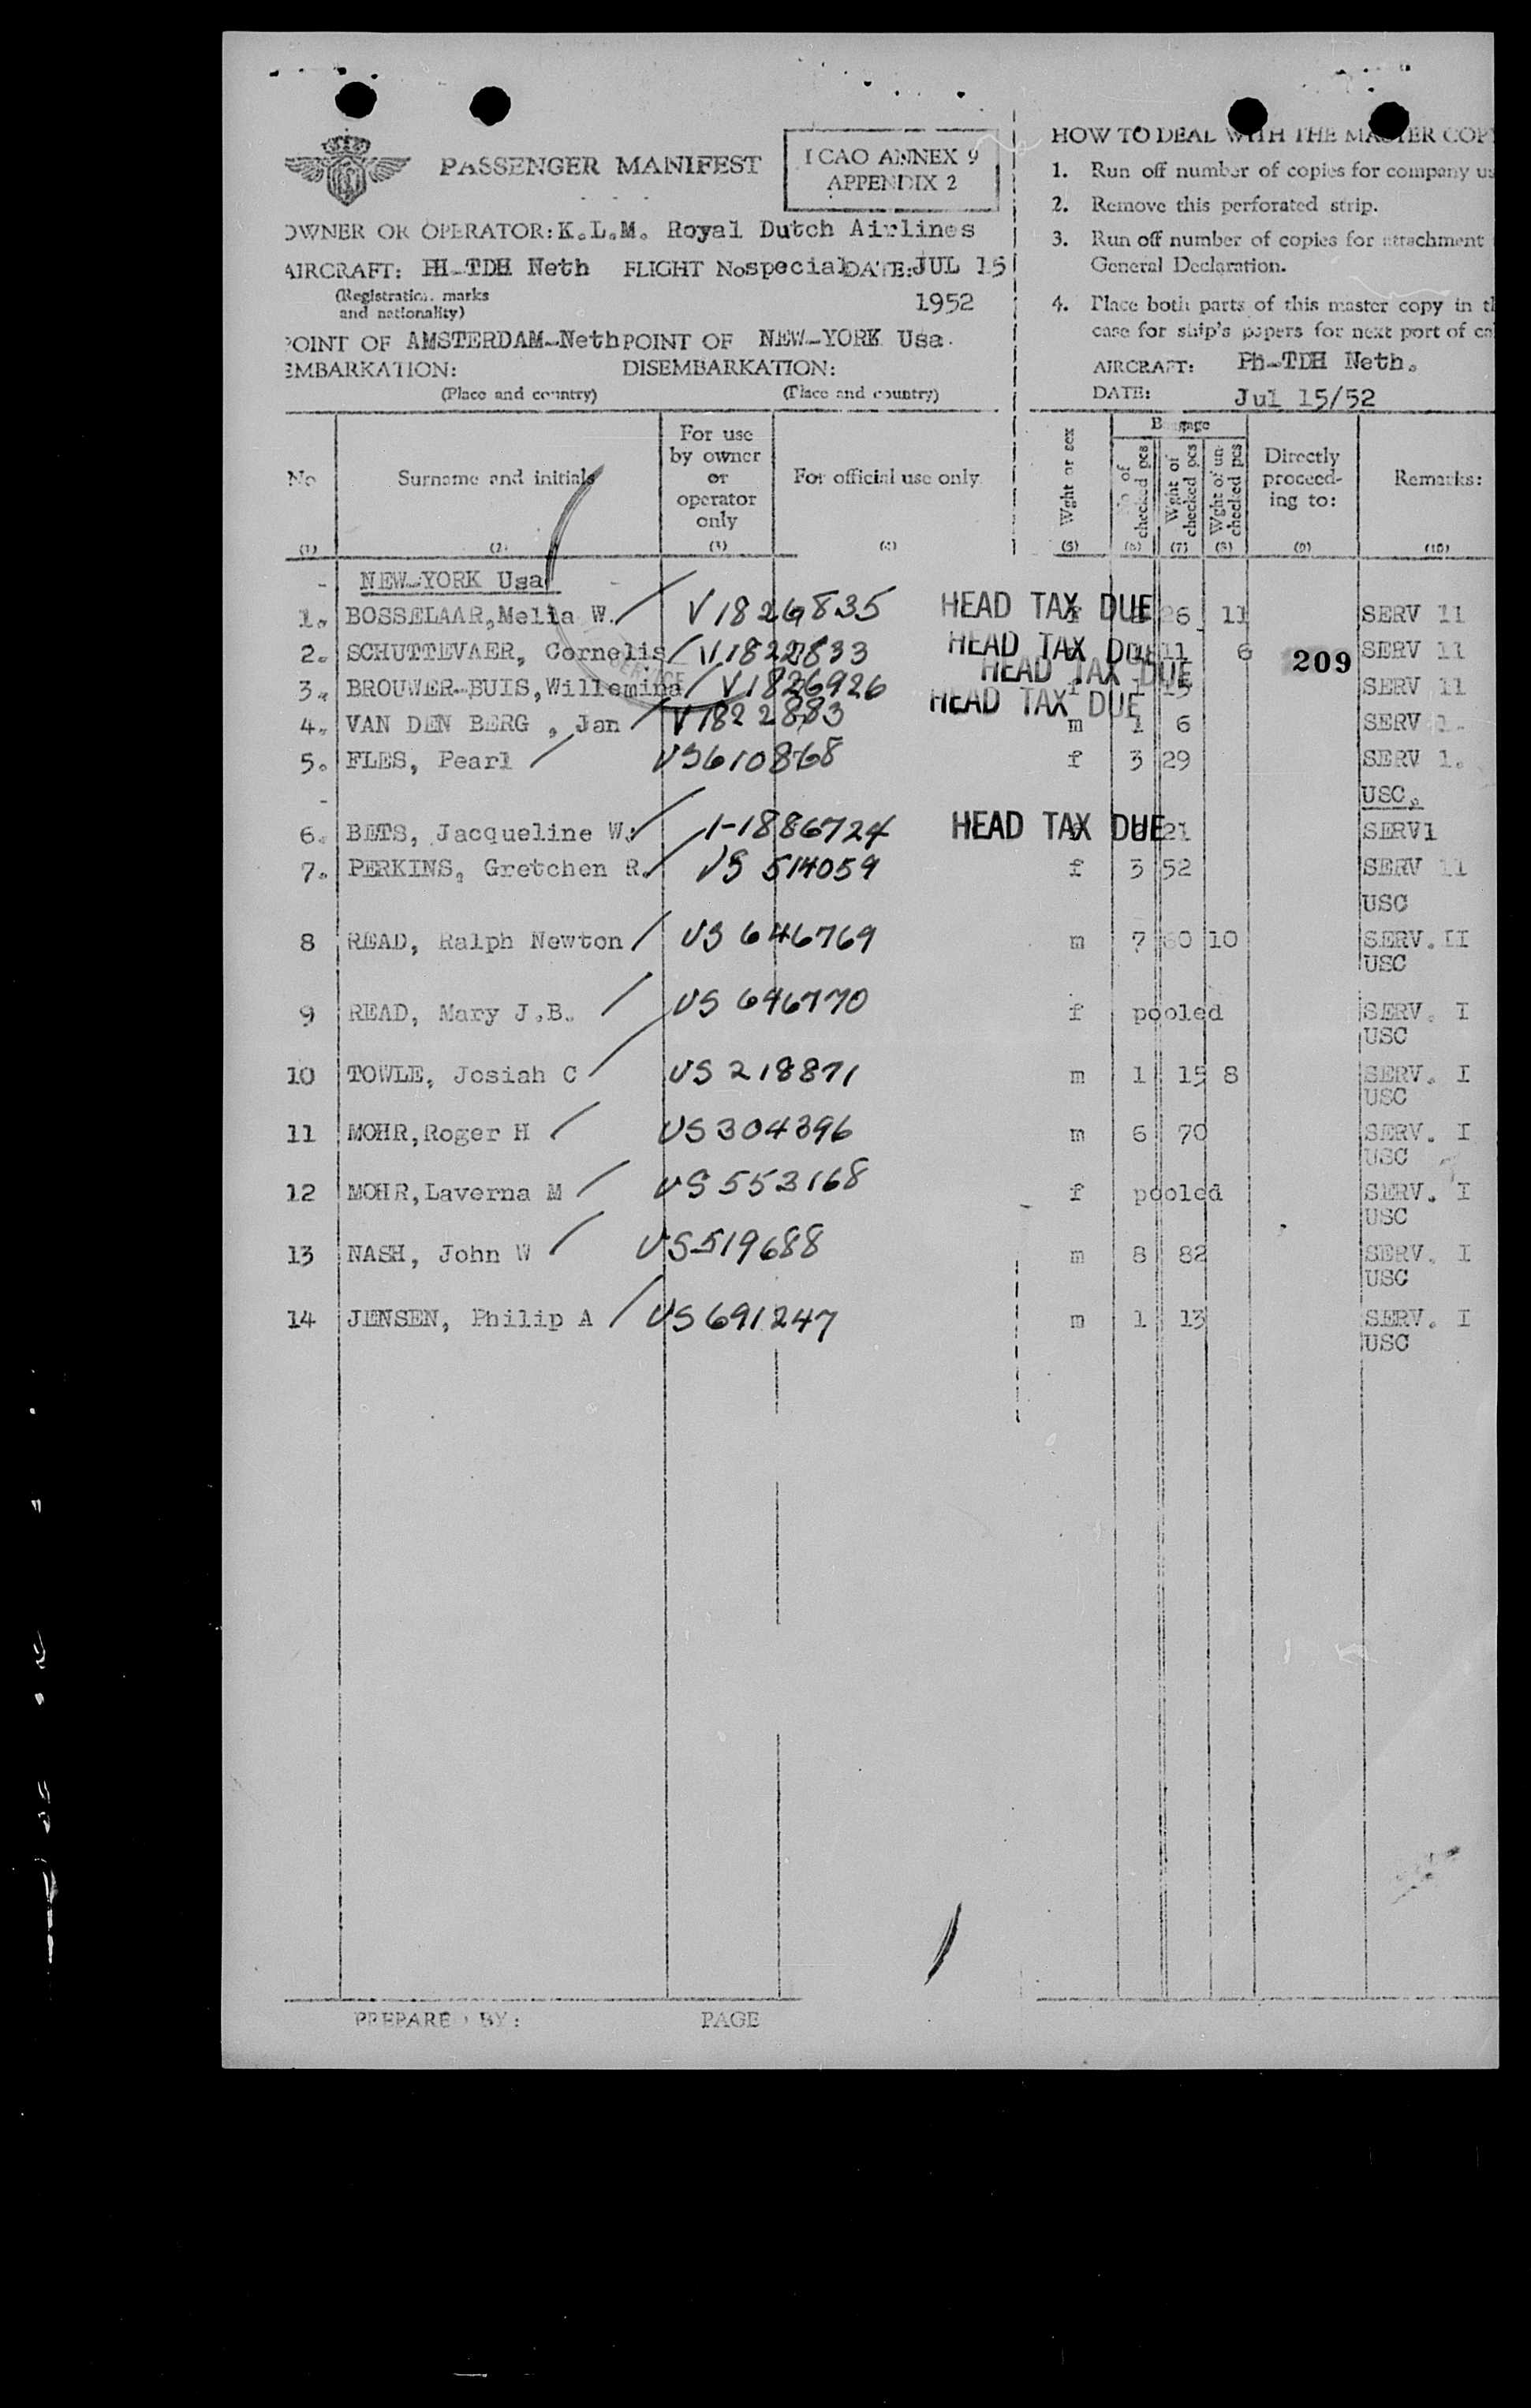 PASSENGER MANIFEST
ICAO ANNEX 9
APPENDIX 2
OWNER OR OPERATOR: K.L.M. Royal Dutch Airlines
AIRCRAFT: PH-TDH Neth FLIGHT No special DATE: JUL 15
(Registration marks
and nationality)
1952
POINT OF AMSTERDAM-Neth POINT OF NEW-YORK Usa.
EMBARKATION: DISEMBARKATION:
(Place and country) (Place and country)
HOW TO DEAL WITH THE MASTER COP
1. Run off number of copies for company us
2. Remove this perforated strip.
3. Run off number of copies for attachment
General Declaration.
4. Place both parts of this master copy in th
case for ship's papers for next port of ca
AIRCRAFT: Ph-TDH Neth.
DATE: Jul 15/52
No Surname and initials For use by owner or operator only For official use only Wght or sex Baggage No of checked pcs Wght of checked pcs Wght of un-checked pcs Directly proceed-ing to: Remarks:
(1) (2) (3) (4) (5) (6) (7) (8) (9) (10)
- NEW-YORK Usa
1. BOSSELAAR, Melia W. V1826835 HEAD TAX DUE f 26 11 SERV 11
2. SCHUTTEVAER, Cornelis V1822833 HEAD TAX DUE 11 6 209 SERV 11
3. BROUWER-BUIS, Willemina V1826926 HEAD TAX DUE f 1 15 SERV 11
4. VAN DEN BERG , Jan V1822883 HEAD TAX DUE m 1 6 SERV 1.
5. FLES, Pearl US610868 f 3 29 SERV 1.
- USC.
6. BETS, Jacqueline W. I-1886724 HEAD TAX DUE 21 SERV1
7. PERKINS, Gretchen R. US 514059 f 3 52 SERV 11
USC
8 READ, Ralph Newton US 646769 m 7 60 10 SERV. II
USC
9 READ, Mary J.B. US 646770 f pooled SERV. I
USC
10 TOWLE, Josiah C US 218871 m 1 15 8 SERV. I
USC
11 MOHR, Roger H US304396 m 6 70 SERV. I
USC
12 MOHR, Laverna M US553168 f pooled SERV. I
USC
13 NASH, John W US519688 m 8 82 SERV. I
USC
14 JENSEN, Philip A US691247 m 1 13 SERV. I
USC
PREPARED BY: PAGE